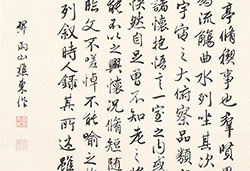 亭脩禊事也羣賢畢
為流觴曲水列坐其次
宇宙之大俯察品類
諸懷抱悟言一室之內或
快然自足曾不知老之將
能不以之興懷況脩短随
臨文不嗟悼不能喻之於
列叙時人録其所述雖
雨山樵東作